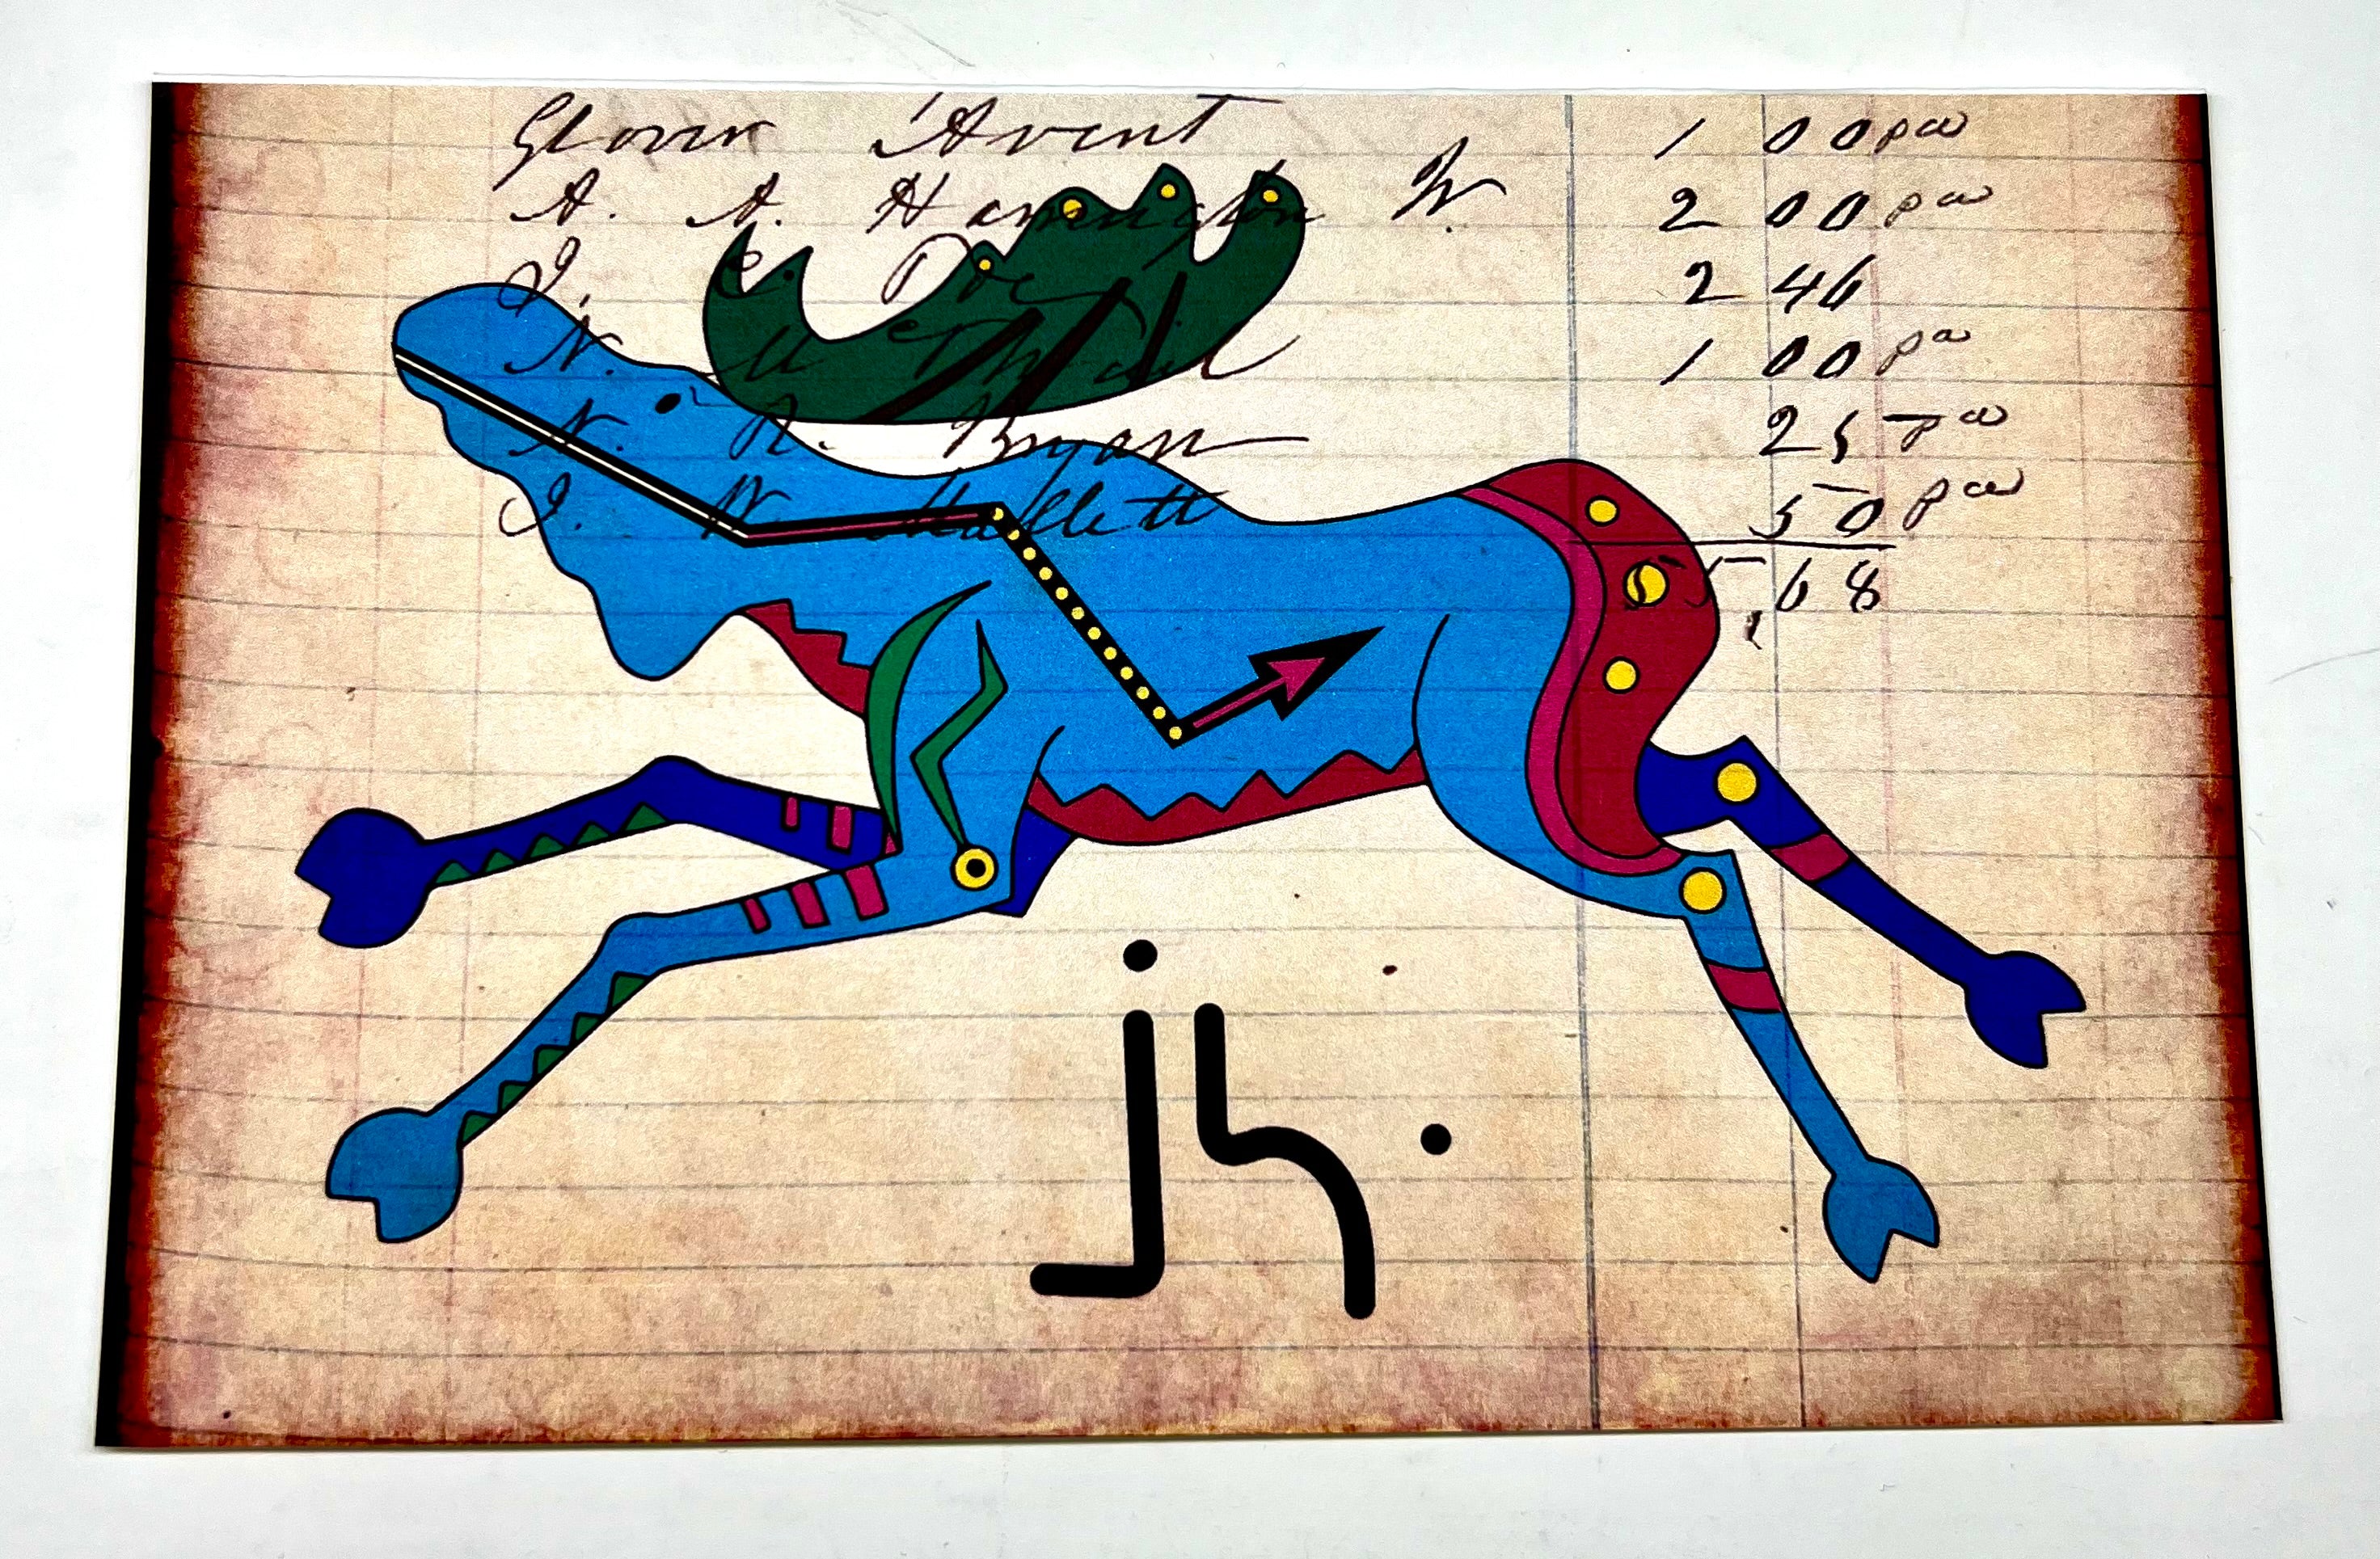 Glover Avent 1 00 pa
A. A. Harrington W. 2 00 pa
J. C. Poe 2 46
N. U. Thrail 1 00 pa
N. R. Bryan 25 pa
J. W. Hallett 50 pa
68
jh.